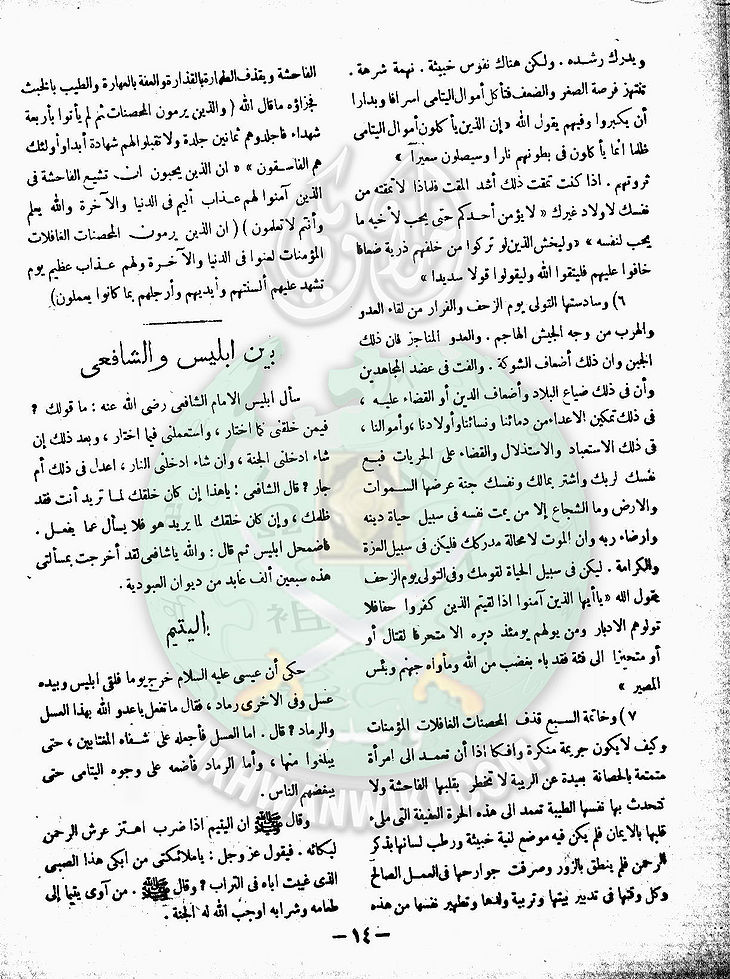 ويدرك رشده . ولكن هناك نفوس خبيثة . نهمة شرهة .
تنتهز فرصة الصغر والضعف فتأكل أموال اليتامى اسرافا وبدارا
أن يكبروا وفيهم يقول الله « إن الذين يأكلون أموال اليتامى
ظلما انما يأكلون فى بطونهم نارا وسيصلون سعيرا »
ثروتهم . اذا كنت تمقت ذلك أشد المقت فلماذا لا تمقته من
نفسك لاولاد غيرك « لا يؤمن أحدكم حتى يحب لأخيه ما
يحب لنفسه » «وليخش الذين لو تركوا من خلفهم ذرية ضعافا
خافوا عليهم فليتقوا الله وليقولوا قولا سديدا »
٦) وسادستها التولى يوم الزحف والفرار من لقاء العدو
والهرب من وجه الجيش الهاجم . والعدو المناجز فان ذلك
الجبن وان ذلك أضعاف الشوكة . والفت فى عضد المجاهدين
وأن فى ذلك ضياع البلاد وأضعاف الدين أو القضاء عليه ،
فى ذلك تمكين الاعداء من دمائنا ونسائنا وأولادنا ، وأموالنا ،
فى ذلك الاستعباد والاستذلال والقضاء على الحريات فبع
نفسك لربك واشتر بمالك ونفسك جنة عرضها السموات
والارض وما الشجاع إلا من يمت نفسه فى سبيل حياة دينه
وارضاء ربه وان الموت لا محالة مدركك فليكن فى سبيل العزة
والكرامة . ليكن فى سبيل الحياة لقومك وفى التولى يوم الزحف
يقول الله « ياأيها الذين آمنوا اذا لقيتم الذين كفروا زحفا فلا
تولوهم الادبار ومن يولهم يومئذ دبره الا متحرفا لقتال أو
أو متحيزا الى فئة فقد باء بغضب من الله ومأواه جهنم وبئس
المصير »
٧) وخاتمة السبع قذف المحصنات الغافلات المؤمنات
وكيف لا يكون جريمة منكرة وافكا اذا أن تعمد الى امرأة
متمتعة بالحصانة بعيدة عن الريبة لا تخطر بقلبها الفاحشة ولا
تتحدث بها نفسها الطيبة تعمد الى هذه الحرة العفيفة التى ملىء
قلبها بالايمان فلم يكن فيه موضع لنية خبيثة ورطب لسانها بذكر
الرحمن فلم ينطق بالزور وصرفت جوارحها فى العمل الصالح
وكل وقتها فى تدبير بيتها وتربية ولدها وتطهير نفسها من هذه
الفاحشة ويقذف الطهارة بالقذارة والعفة بالعهارة والطيب بالخبث
فجزاؤه ما قال الله ( والذين يرمون المحصنات ثم لم يأتوا بأربعة
شهداء فاجلدوهم ثمانين جلدة ولا تقبلوا لهم شهادة أبدا وأولئك
هم الفاسقون » « ان الذين يحبون ان تشيع الفاحشة فى
الذين آمنوا لهم عذاب أليم فى الدنيا والآخرة والله يعلم
وأنتم لا تعلمون ) ( ان الذين يرمون المحصنات الغافلات
المؤمنات لعنوا فى الدنيا والآخرة ولهم عذاب عظيم يوم
تشهد عليهم ألسنتهم وأيديهم وأرجلهم بما كانوا يعملون)
بين ابليس والشافعى
سأل ابليس الامام الشافعى رضى الله عنه : ما قولك ؟
فيمن خلقنى لما اختار ، واستعملنى فيما اختار ، وبعد ذلك إن
شاء ادخلنى الجنة ، وان شاء ادخلنى النار ، اعدل فى ذلك أم
جار ؟ قال الشافعى : ياهذا إن كان خلقك لما تريد أنت فقد
ظلمك ، وإن كان خلقك لما يريد هو فلا يسأل عما يفعل .
فاضمحل ابليس ثم قال : والله ياشافعى لقد أخرجت بمسألتى
هذه سبعين ألف عابد من ديوان العبودية .
اليتيم
حكى أن عيسى عليه السلام خرج يوما فلقى ابليس وبيده
عسل وفى الاخرى رماد ، فقال ما تفعل ياعدو الله بهذا العسل
والرماد ؟ قال . اما العسل فأجعله على شفاه المغتابين ، حتى
يبلغوا منها ، وأما الرماد فأضعه على وجوه اليتامى حتى
يبغضهم الناس .
وقال ﷺ ان اليتيم اذا ضرب اهتز عرش الرحمن
لبكائه . فيقول عز وجل : ياملائكتى من ابكى هذا الصبى
الذى غيبت اباه فى التراب ؟ وقال ﷺ . من آوى يتيما إلى
طعامه وشرابه اوجب الله له الجنة .
— ١٤ —
IKHWANWIKI.COM